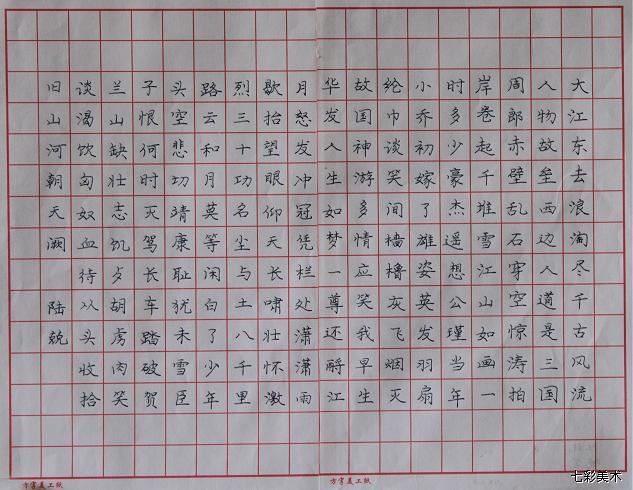 大江东去浪淘尽千古风流
人物故垒西边人道是三国
周郎赤壁乱石穿空惊涛拍
岸卷起千堆雪江山如画一
时多少豪杰遥想公瑾当年
小乔初嫁了雄姿英发羽扇
纶巾谈笑间樯橹灰飞烟灭
故国神游多情应笑我早生
华发人生如梦一尊还酹江
月怒发冲冠凭栏处潇潇雨
歇抬望眼仰天长啸壮怀激
烈三十功名尘与土八千里
路云和月莫等闲白了少年
头空悲切靖康耻犹未雪臣
子恨何时灭驾长车踏破贺
兰山缺壮志饥歺胡虏肉笑
谈渴饮匈奴血待从头收拾
旧山河朝天阙 陆
七彩美术